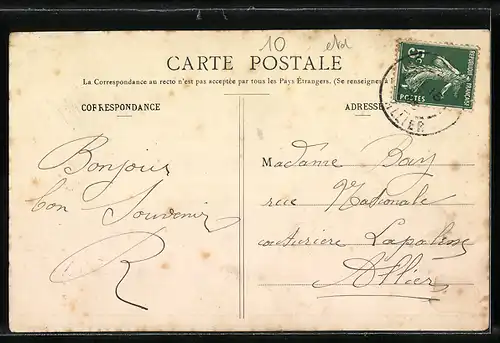 10
CARTE POSTALE
La Correspondance au recto n'est pas acceptée par tous les Pays Étrangers. (Se renseignez à
CORRESPONDANCE
ADRESSE
REPUBLIQUE FRANÇAISE
5c
POSTES
ALLIER
Bonjour
bon Souvenir
R
Madame Bary
rue Nationale
couturiere Lapalisse
Allier